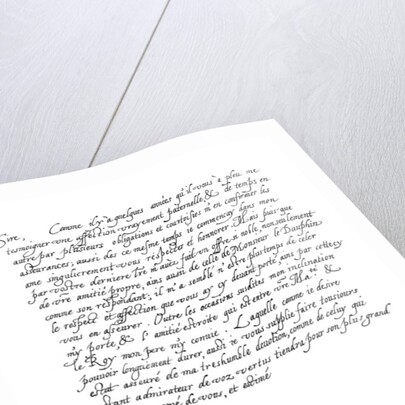 Sire,
Comme il y a quelques années qu'il vous a pleu me
tesmoigner une affection vrayement paternelle, & de temps en
autre par plusieurs obligations et courtoisies m'en confirmer les
assurances; aussi des ce mesme temps je commençay dans mon
ame singulierement vous respecter et honnorer. Mais puis que
par vostre derniere l'r m'avez fait un offre si noble, non seulement
de v're amitié propre, ains aussi de celle de Monsieur le Dauphin
comme son respondant, il m'a semblé n'estre plus temps de celer
le respect et affection que vous ay et devant porté, ains par cettecy
vous en asseurer. Outre les occasions susdites mon inclination
m'y porte, & l'amitié estroite qui est entre v're Ma.té &
le Roy mon pere m'y convie. Laquelle comme je desire
pouvoir longuement durer, aussi je vous supplie faire tousjours
estat assuré de ma treshumble devotion, comme de celuy qui
estant admirateur de voz vertus tiendra pour son plus grand
de vous, et estimé